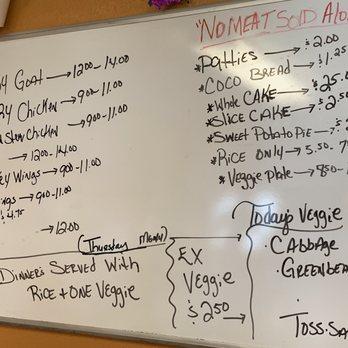 "NO MEAT SOLD Alo
RY GOAT → 12.00-14.00
RY Chicken → 9.00-11.00
Stew Chicken → 9.00-11.00
→ 12.00-14.00
EY WINGS → 9.00-11.00
NGS → 9.00-11.00
$4.75
→ 12.00
(Thursday MENU)
DINNERS SERVED WITH
RICE + ONE Veggie
EX
Veggie
$2.50 →
*PATTIES → $2.00
*COCO BREAD → $1.25
*Whole CAKE → $25.0
*SLICE CAKE → $2.5
*SWEET POTATO PIE → $
*RICE ONLY → 5.50-7
*Veggie Plate → 8.50-1
Today Veggie
• CABBAGE
• GREENBEA
•
TOSS.SA